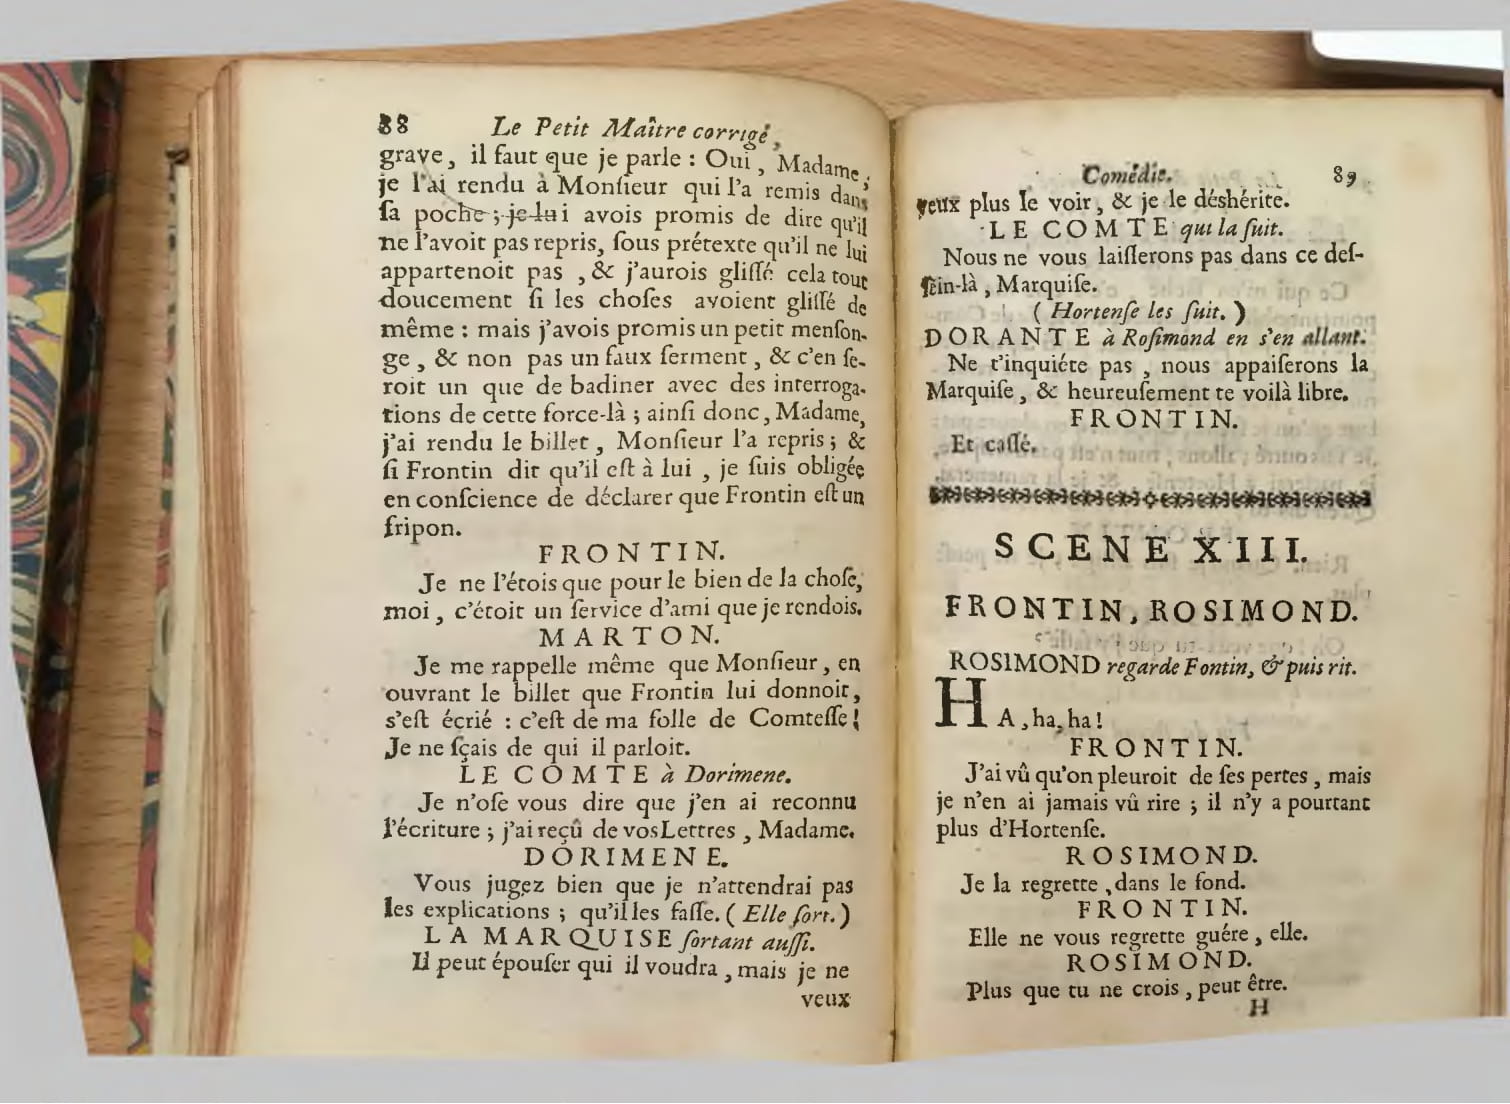 88 Le Petit Maître corrigé,
grave, il faut que je parle : Oui, Madame,
je l'ai rendu à Monſieur qui l'a remis dans
ſa poche ; je lui avois promis de dire qu'il
ne l'avoit pas repris, ſous prétexte qu'il ne lui
appartenoit pas , & j'aurois gliſſé cela tout
doucement ſi les choſes avoient gliſſé de
même : mais j'avois promis un petit menſon-
ge , & non pas un faux ſerment , & c'en ſe-
roit un que de badiner avec des interroga-
tions de cette force-là ; ainſi donc, Madame,
j'ai rendu le billet , Monſieur l'a repris ; &
ſi Frontin dit qu'il eſt à lui , je ſuis obligée
en conſcience de déclarer que Frontin eſt un
fripon.
FRONTIN.
Je ne l'étois que pour le bien de la choſe,
moi , c'étoit un ſervice d'ami que je rendois.
MARTON.
Je me rappelle même que Monſieur , en
ouvrant le billet que Frontin lui donnoit,
s'eſt écrié : c'eſt de ma folle de Comteſſe !
Je ne ſçais de qui il parloit.
LE COMTE à Dorimene.
Je n'oſe vous dire que j'en ai reconnu
l'écriture ; j'ai reçû de vos Lettres , Madame.
DORIMENE.
Vous jugez bien que je n'attendrai pas
les explications ; qu'il les faſſe. ( Elle ſort. )
LA MARQUISE ſortant auſſi.
Il peut épouſer qui il voudra , mais je ne
veux
Comédie. 89
veux plus le voir , & je le déshérite.
LE COMTE qui la ſuit.
Nous ne vous laiſſerons pas dans ce deſ-
ſein-là , Marquiſe.
( Hortenſe les ſuit. )
DORANTE à Roſimond en s'en allant.
Ne t'inquiéte pas , nous appaiſerons la
Marquiſe , & heureuſement te voilà libre.
FRONTIN.
Et caſſé.
SCENE XIII.
FRONTIN, ROSIMOND.
ROSIMOND regarde Fontin, & puis rit.
HA, ha, ha !
FRONTIN.
J'ai vû qu'on pleuroit de ſes pertes , mais
je n'en ai jamais vû rire ; il n'y a pourtant
plus d'Hortenſe.
ROSIMOND.
Je la regrette , dans le fond.
FRONTIN.
Elle ne vous regrette guére , elle.
ROSIMOND.
Plus que tu ne crois , peut être.
H